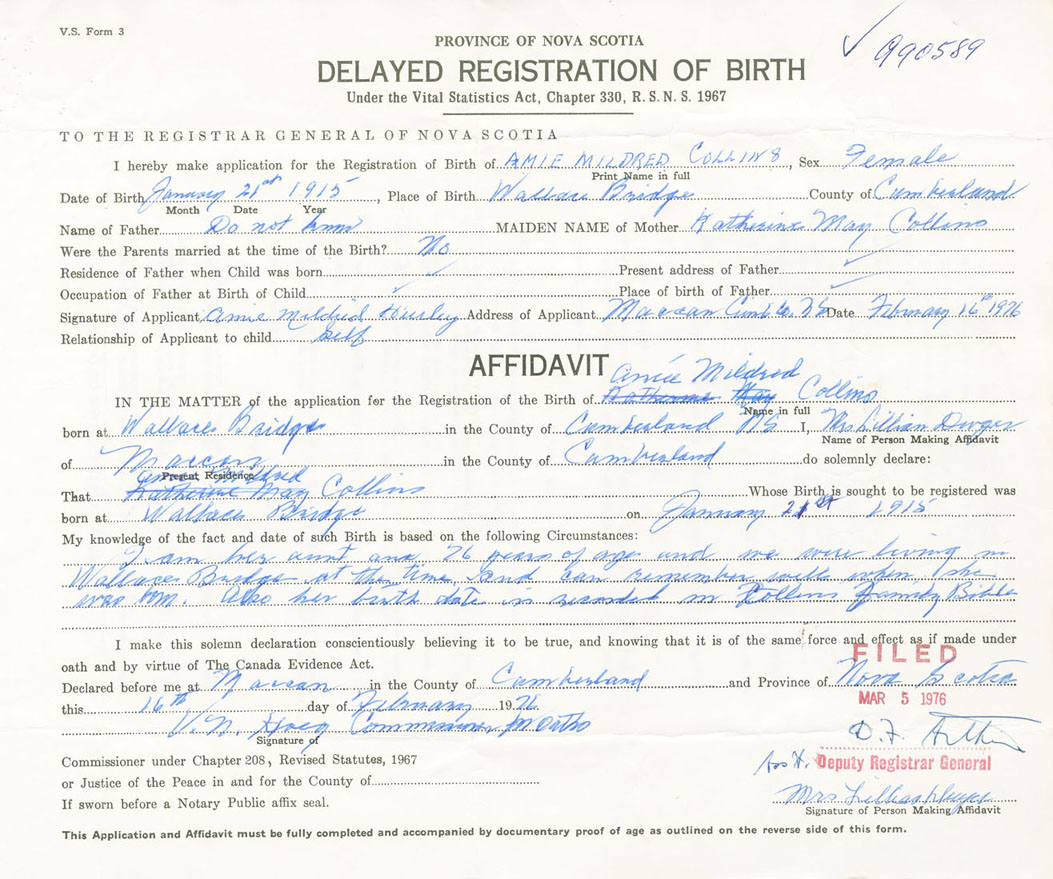 V.S. Form 3
990589
PROVINCE OF NOVA SCOTIA
DELAYED REGISTRATION OF BIRTH
Under the Vital Statistics Act, Chapter 330, R. S. N. S. 1967
TO THE REGISTRAR GENERAL OF NOVA SCOTIA
I hereby make application for the Registration of Birth of AMIE MILDRED COLLINS, Sex Female
Print Name in full
Date of Birth January 21st 1915, Place of Birth Wallace Bridge County of Cumberland
Month Date Year
Name of Father Do not know MAIDEN NAME of Mother Katherine May Collins
Were the Parents married at the time of the Birth? No
Residence of Father when Child was born Present address of Father
Occupation of Father at Birth of Child Place of birth of Father
Signature of Applicant Amie Mildred Address of Applicant Maccan Cumb. Co. N S Date February 16th 1976
Relationship of Applicant to child self
AFFIDAVIT
Amie Mildred
IN THE MATTER of the application for the Registration of Birth of Katherine May Collins
Name in full
born at Wallace Bridge in the County of Cumberland NS I, Mrs Lillian
Name of Person Making Affidavit
of Maccan in the County of Cumberland do solemnly declare:
Present Residence
Amie Mildred
That Katherine May Collins Whose Birth is sought to be registered was
born at Wallace Bridge on January 21st 1915
My knowledge of the fact and date of such Birth is based on the following Circumstances:
I am her aunt and 76 years of age and we were living in
Wallace Bridge at the time and can remember well when she
was born. Also her birth date is recorded in Collins Family Bible
I make this solemn declaration conscientiously believing it to be true, and knowing that it is of the same force and effect as if made under
oath and by virtue of The Canada Evidence Act.
FILED
Declared before me at Maccan in the County of Cumberland and Province of Nova Scotia
MAR 5 1976
this 16th day of February 1976
V. N. Commissioner of Oaths
Signature of
D. F.
Commissioner under Chapter 208, Revised Statutes, 1967
Deputy Registrar General
or Justice of the Peace in and for the County of
Mrs Lillian
If sworn before a Notary Public affix seal.
Signature of Person Making Affidavit
This Application and Affidavit must be fully completed and accompanied by documentary proof of age as outlined on the reverse side of this form.